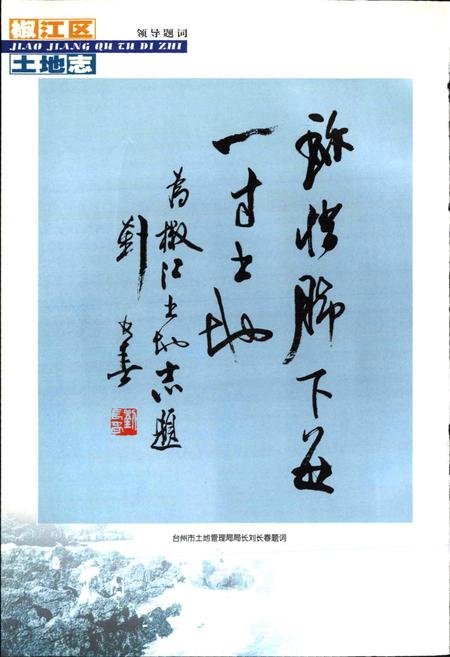 椒江区
JIAO JIANG QU TU DI ZHI
土地志
领导题词
珍惜脚下每
一寸土地
为椒江土地志题
刘长春
台州市土地管理局局长刘长春题词